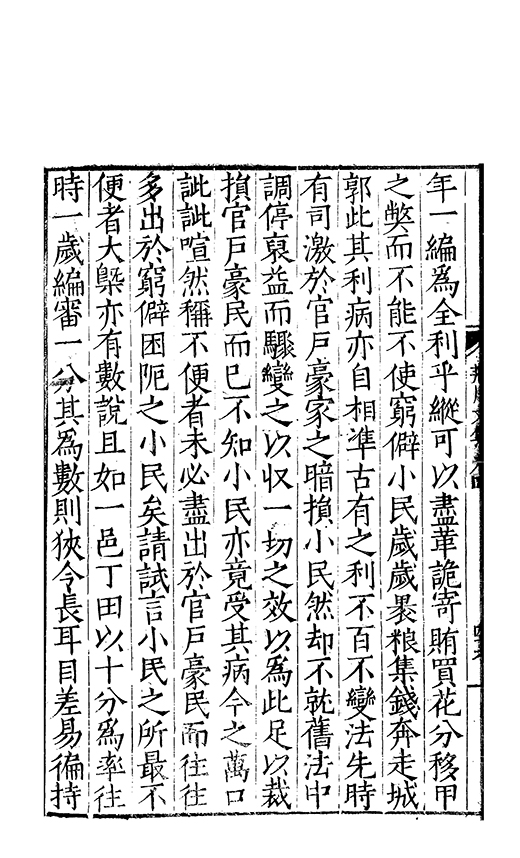 年一編爲全利乎縱可以盡革詭寄賄買花分移甲
之弊而不能不使窮僻小民歲歲裹粮集錢奔走城
郭此其利病亦自相準古有之利不百不變法先時
有司激於官戸豪家之暗損小民然却不就舊法中
調停裒益而驟變之以収一切之效以爲此足以裁
損官戸豪民而已不知小民亦竟受其病今之萬口
訿訿喧然稱不便者未必盡出於官戸豪民而往往
多出於窮僻困阨之小民矣請試言小民之所最不
便者大槩亦有數說且如一邑丁田以十分爲率往
時一歲編審一分其爲數則狹令長耳目差易徧持